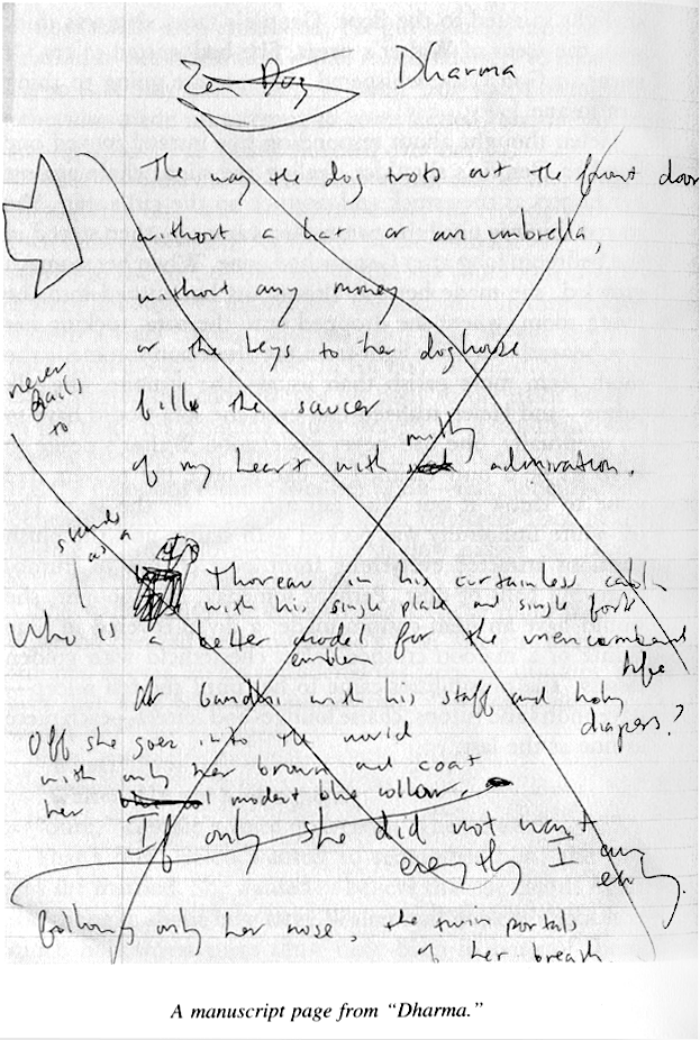 Zen Dog Dharma
The way the dog trots out the front door
without a hat or an umbrella,
without any money
or the keys to her doghouse
never fails to
fills the saucer
milky
of my heart with admiration.
stands as a
Thoreau in his curtainless cabin
with his single plate and single fork
Who is a better model for the unencumbered
emblem life
Or Gandhi with his staff and holy
diapers?
Off she goes into the world
with only her brown coat
her modest blue collar.
If only she did not want
everything I
following only her nose, the twin portals
of her breath
A manuscript page from “Dharma.”